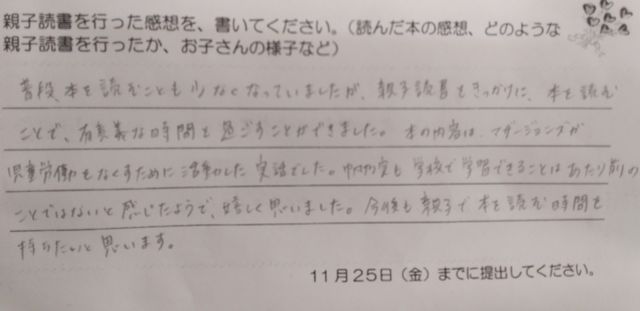 親子読書を行った感想を、書いてください。（読んだ本の感想、どのような
親子読書を行ったか、お子さんの様子など）
普段本を読むことも少なくなっていましたが、親子読書をきっかけに、本を読む
ことで、有意義な時間を過ごすことができました。本の内容は、マザージョーンズが
児童労働をなくすために活動した実話でした。も学校で学習できることはあたり前の
ことではないと感じたようで、嬉しく思いました。今後も親子で本を読む時間を
持ちたいと思います。
11月25日（金）までに提出してください。